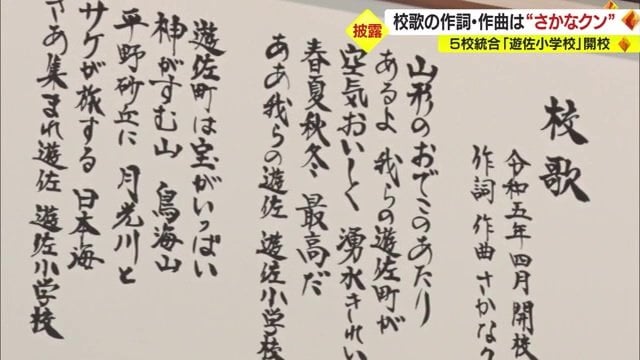 披露
校歌の作詞・作曲は“さかなクン”
5校統合「遊佐小学校」開校
校歌
令和五年四月 開校
作詞 作曲 さかなク
山形のおでこのあたり
あるよ 我らの遊佐町が
空気おいしく 湧水きれい
春夏秋冬 最高だ
ああ我らの遊佐 遊佐小学校
遊佐町は宝がいっぱい
神がすむ山 鳥海山
平野砂丘に 月光川と
サケが旅する 日本海
さあ集まれ遊佐 遊佐小学校